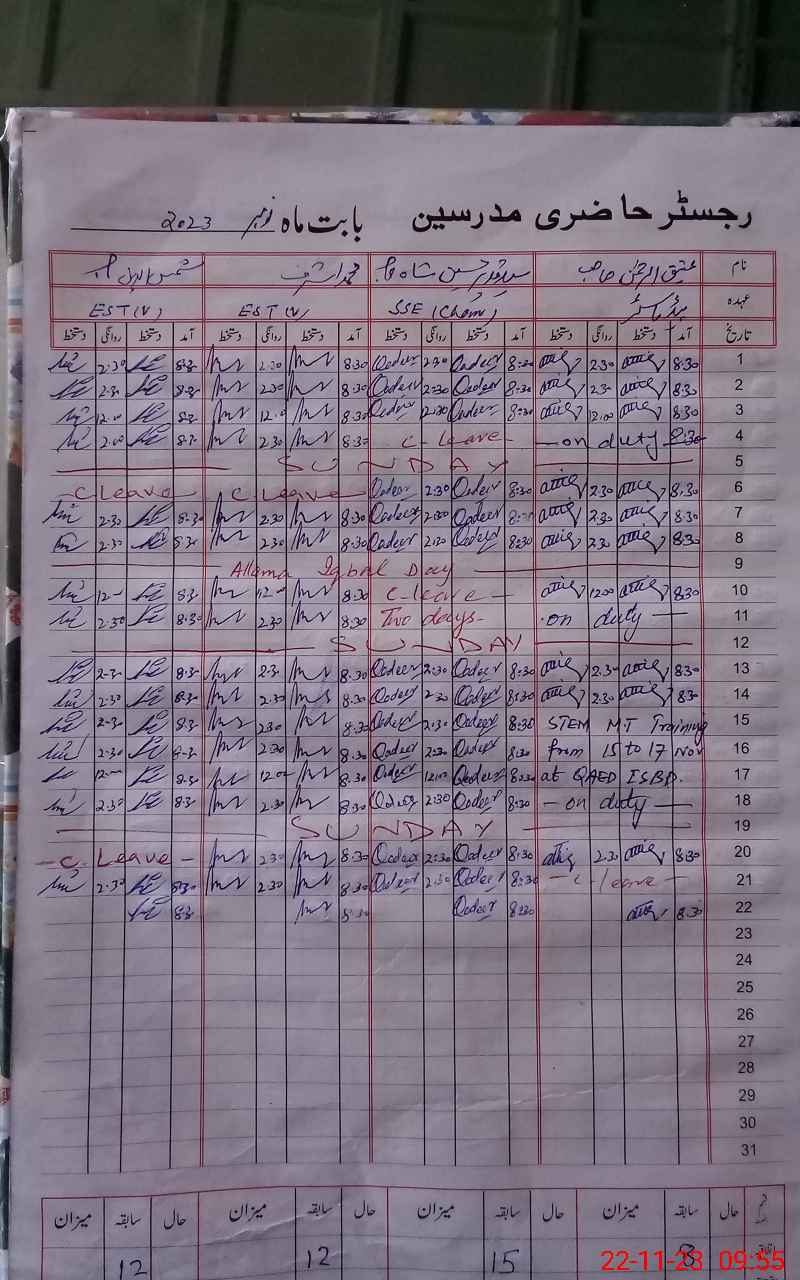 رجسٹر حاضری مدرسین بابت ماہ نومبر 2023
نام عتیق الرحمٰن صاحب محمد اشرف
عہدہ ہیڈ ماسٹر SSE (Chem) EST (V) EST (V)
تاریخ آمد دستخط روانگی دستخط آمد دستخط روانگی دستخط آمد دستخط روانگی دستخط آمد دستخط روانگی دستخط
1 8:30 attiq 2:30 attiq 8:30 Qadeer 2:30 Qadeer 8:30 2:30 8:30 2:30
2 8:30 attiq 2:30 attiq 8:30 Qadeer 2:30 Qadeer 8:30 2:30 8:30 2:30
3 8:30 attiq 12:00 attiq 8:30 Qadeer 12:30 Qadeer 8:30 12:00 8:30 12:00
4 8:30 on duty C-leave 8:30 2:30 8:30 2:00
5 SUNDAY
6 8:30 attiq 2:30 attiq 8:30 Qadeer 2:30 Qadeer C Leave C Leave
7 8:30 attiq 2:30 attiq 8:30 Qadeer 2:30 Qadeer 8:30 2:30 8:30 2:30
8 8:30 attiq 2:30 attiq 8:30 Qadeer 2:30 Qadeer 8:30 2:30 8:30 2:30
9 Allama Iqbal Day
10 8:30 attiq 12:00 attiq C-leave 8:30 12:00 8:30 12:00
11 on duty Two days- 8:30 2:30 8:30 2:30
12 SUNDAY
13 8:30 attiq 2:30 attiq 8:30 Qadeer 2:30 Qadeer 8:30 2:30 8:30 2:30
14 8:30 attiq 2:30 attiq 8:30 Qadeer 2:30 Qadeer 8:30 2:30 8:30 2:30
15 STEM MT Training 8:30 Qadeer 2:30 Qadeer 8:30 2:30 8:30 2:30
16 from 15 to 17 Nov 8:30 Qadeer 2:30 Qadeer 8:30 2:30 8:30 2:30
17 at QAED ISBD. 8:30 Qadeer 12:00 Qadeer 8:30 12:00 8:30 12:00
18 - on duty - 8:30 Qadeer 2:30 Qadeer 8:30 2:30 8:30 2:30
19 SUNDAY
20 8:30 attiq 2:30 attiq 8:30 Qadeer 2:30 Qadeer 8:30 2:30 - C. Leave -
21 - C-leave - 8:30 Qadeer 2:30 Qadeer 8:30 2:30 8:30 2:30
22 8:30 attiq 8:30 Qadeer 8:30 8:30
23
24
25
26
27
28
29
30
31
حال سابقہ میزان حال سابقہ میزان حال سابقہ میزان حال سابقہ میزان
8 15 12 12
22-11-23 09:55